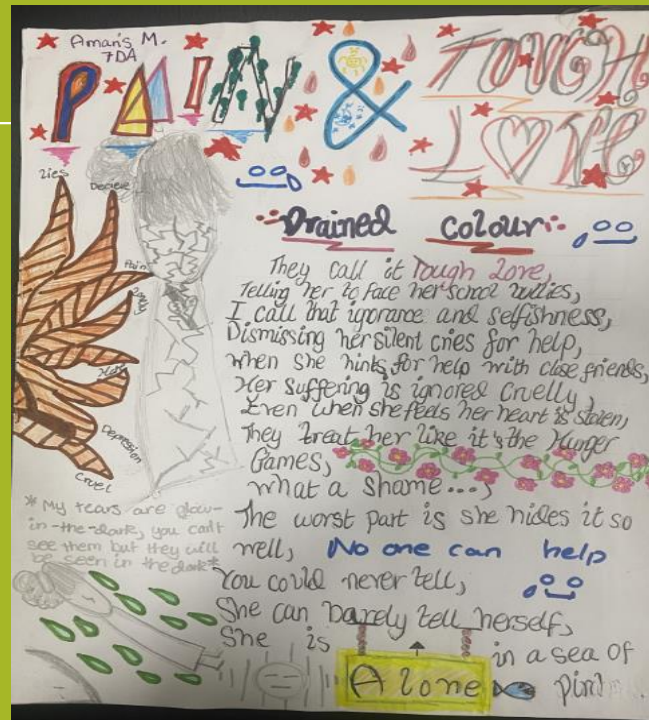 Aman's M.
7DA
PAIN & TOUGH
LOVE
Lies
Deceive
Pain
Hate
Depression
Cruel
Drained Colour
They call it Tough Love,
Telling her to face her school bullies,
I call that ignorance and selfishness,
Dismissing her silent cries for help,
When she hints for help with close friends,
Her suffering is ignored cruelly,
Even when she feels her heart is stolen,
They treat her like it's the Hunger
Games,
What a shame...,
The worst part is she hides it so
well, No one can help
You could never tell,
She can barely tell herself,
She is Alone in a sea of
*My tears are glow-
in-the-dark, you can't
see them but they will
be seen in the dark*